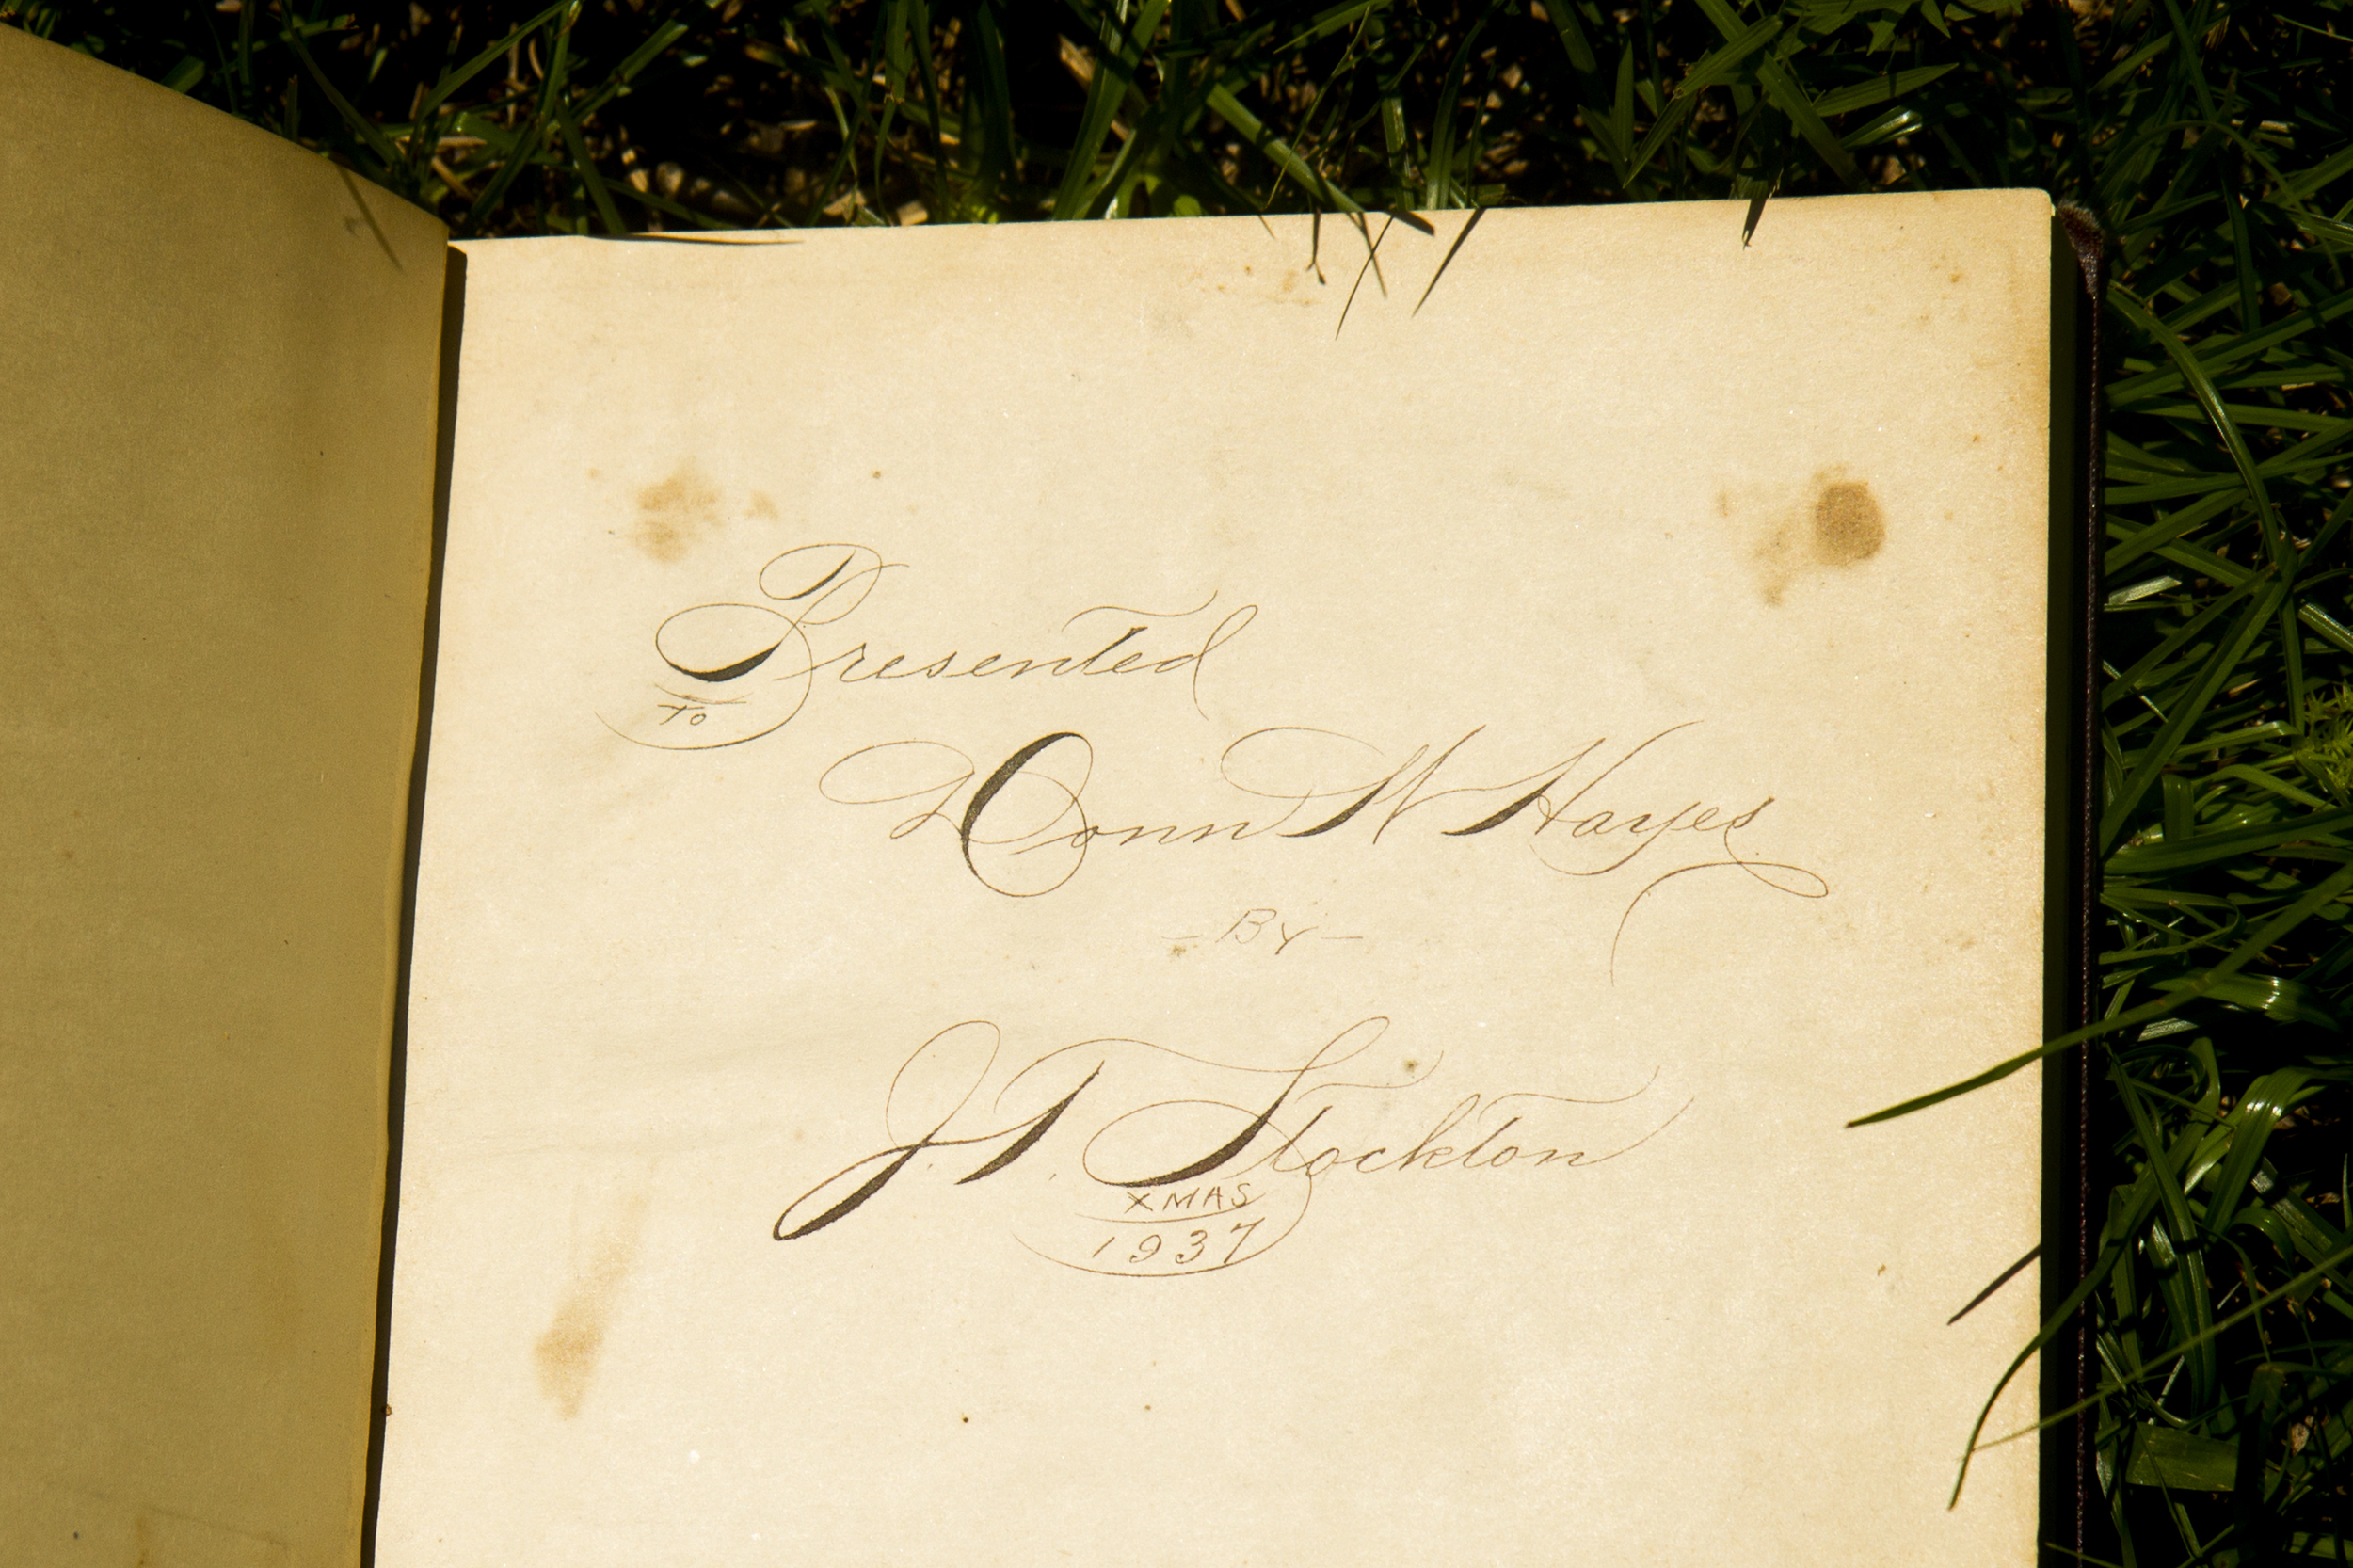 Presented
To
Donn W Hayes
- By -
J. T. Stockton
XMAS
1937